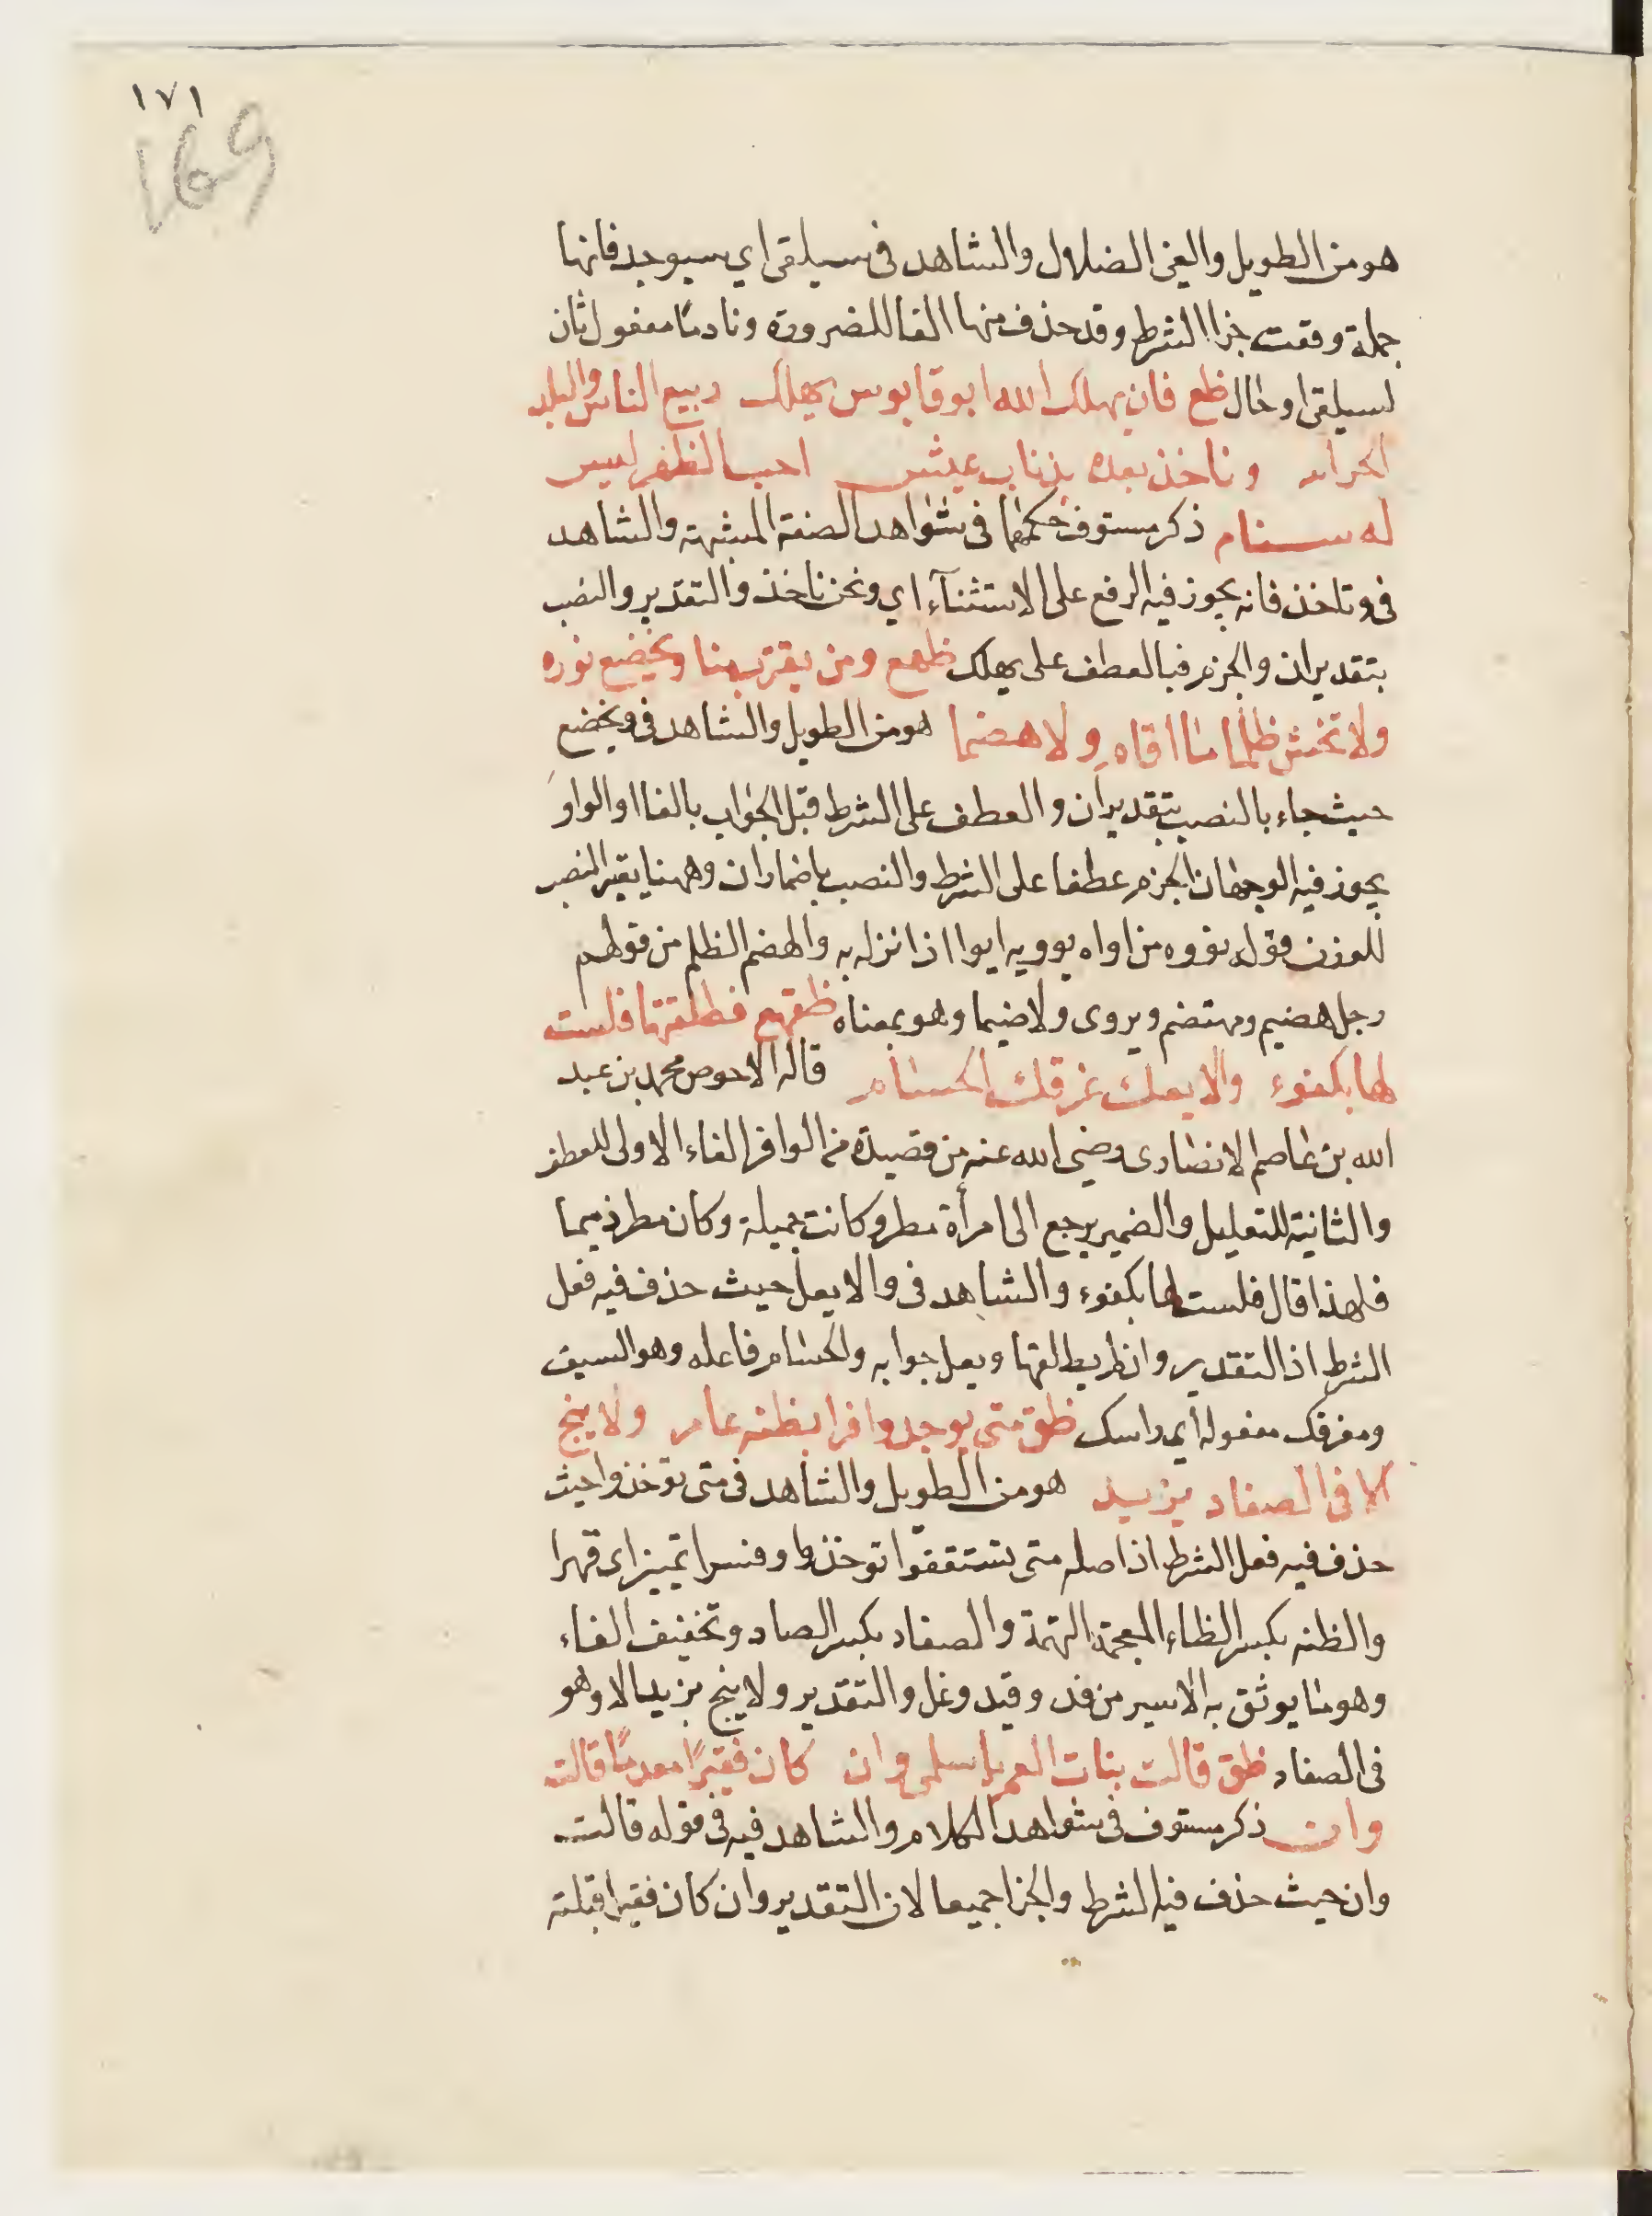 ١٧١
169
هو من الطويل والغى الضلال والشاهد فى سيلقى اي سيوجد فانها
جملة وقعت جزا الشرط وقد حذف منها الفا للضرورة ونادمًا مفعول ثان
لسيلقى او حال ظع فان يهلك الله ابو قابوس يهلك ربيع الناس والبلد
الحرام وناخذ بعده بذناب عيش احب الظهر ليس
له سنام ذكر مستوفى حكمها فى شواهد الصفة المشبهة والشاهد
فى وناخذ فانه يجوز فيه الرفع على الاستثنآء اي ونحن ناخذ والتقدير والنصب
بتقدير ان والجزم فبالعطف على يهلك ظهع ومن يقترب منا ويخضع نوره
ولا تخش ظلما ما اقاه ولا هضما هو من الطويل والشاهد فى ويخضع
حيث جاء بالنصب بتقدير ان والعطف على الشرط قبل الجواب بالفا او الواو
يجوز فيه الوجهان الجزم عطفا على الشرط والنصب باضمار ان وههنا يتعين النصب
للوزن قوله نووه من اواه يوويه ايوا اذا نزله به والهضم الظلم من قولهم
رجل هضيم ومهتضم ويروى ولا ضيما وهو بمعناه ظقهع فطلقها فلست
لها بكفوء والا يعل مفرقك الحسام قاله الاحوص محمد بن عبد
الله بن عاصم الانصارى رضى الله عنه من قصيدة من الوافر الفاء الاولى للعطف
والثانية للتعليل والضمير يرجع الى امرأة مطر وكانت جميلة وكان مطر ذميما
فلهذا قال فلست لها بكفوء والشاهد فى والا يعل حيث حذف فيه فعل
الشرط اذ التقدير وان لم يطلقها ويعل جوابه والحسام فاعله وهو السيف
ومفرقك مفعوله أى راسك ظق متى يوجدوا قرا بظنه عامر ولا ينج
الا فى الصفاد يزيد هو من الطويل والشاهد فى متى توخذوا حيث
حذف فيه فعل الشرط اذ اصله متى تستقفوا توخذوا وقسرا تمييز اى قهرا
والظنه بكسر الظاء المعجمة التهمة والصفاد بكسر الصاد وتخفيف الفاء
وهو ما يوثق به الاسير من قد وقيد وغل والتقدير ولا ينج يزيد الا وهو
فى الصفاد ظق قالت بنات العم يا سلمى وان كان فقيرًا معدمًا قالت
وان ذكر مستوفى فى شواهد الكلام والشاهد فيه فى قوله قالت
وان حيث حذف فيه الشرط والجزا جميعا لان التقدير وان كان فقيرا قبلته